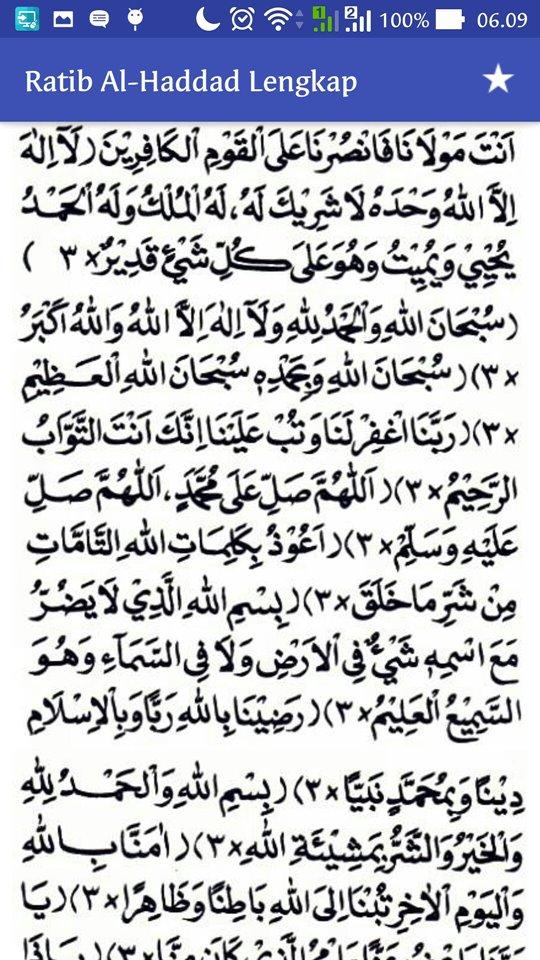 1 2 100% 06.09
Ratib Al-Haddad Lengkap
اَنْتَ مَوْلَانَا فَانْصُرْنَا عَلَى الْقَوْمِ الْكَافِرِيْنَ (لَآ اِلٰهَ
اِلَّا اللهُ وَحْدَهُ لَا شَرِيْكَ لَهُ، لَهُ الْمُلْكُ وَلَهُ الْحَمْدُ
يُحْيِيْ وَيُمِيْتُ وَهُوَ عَلَى كُلِّ شَيْءٍ قَدِيْرٌ×٣ )
(سُبْحَانَ اللهِ وَالْحَمْدُ لِلّٰهِ وَلَآ اِلٰهَ اِلَّا اللهُ وَاللهُ اَكْبَرُ
×٣)(سُبْحَانَ اللهِ وَبِحَمْدِهِ سُبْحَانَ اللهِ الْعَظِيْمِ
×٣)(رَبَّنَا اغْفِرْ لَنَا وَتُبْ عَلَيْنَا اِنَّكَ اَنْتَ التَّوَّابُ
الرَّحِيْمُ×٣)(اَللّٰهُمَّ صَلِّ عَلَى مُحَمَّدٍ، اَللّٰهُمَّ صَلِّ
عَلَيْهِ وَسَلِّمْ×٣)(اَعُوْذُ بِكَلِمَاتِ اللهِ التَّامَّاتِ
مِنْ شَرِّ مَا خَلَقَ×٣)(بِسْمِ اللهِ الَّذِيْ لَا يَضُرُّ
مَعَ اسْمِهِ شَيْءٌ فِي الْاَرْضِ وَلَا فِي السَّمَآءِ وَهُوَ
السَّمِيْعُ الْعَلِيْمُ×٣)(رَضِيْنَا بِاللهِ رَبًّا وَبِالْاِسْلَامِ
دِيْنًا وَبِمُحَمَّدٍ نَبِيًّا×٣)(بِسْمِ اللهِ وَالْحَمْدُ لِلّٰهِ
وَالْخَيْرُ وَالشَّرُّ بِمَشِيْئَةِ اللهِ×٣)(اٰمَنَّا بِاللهِ
وَالْيَوْمِ الْاٰخِرِ تُبْنَا اِلَى اللهِ بَاطِنًا وَظَاهِرًا×٣)(يَا